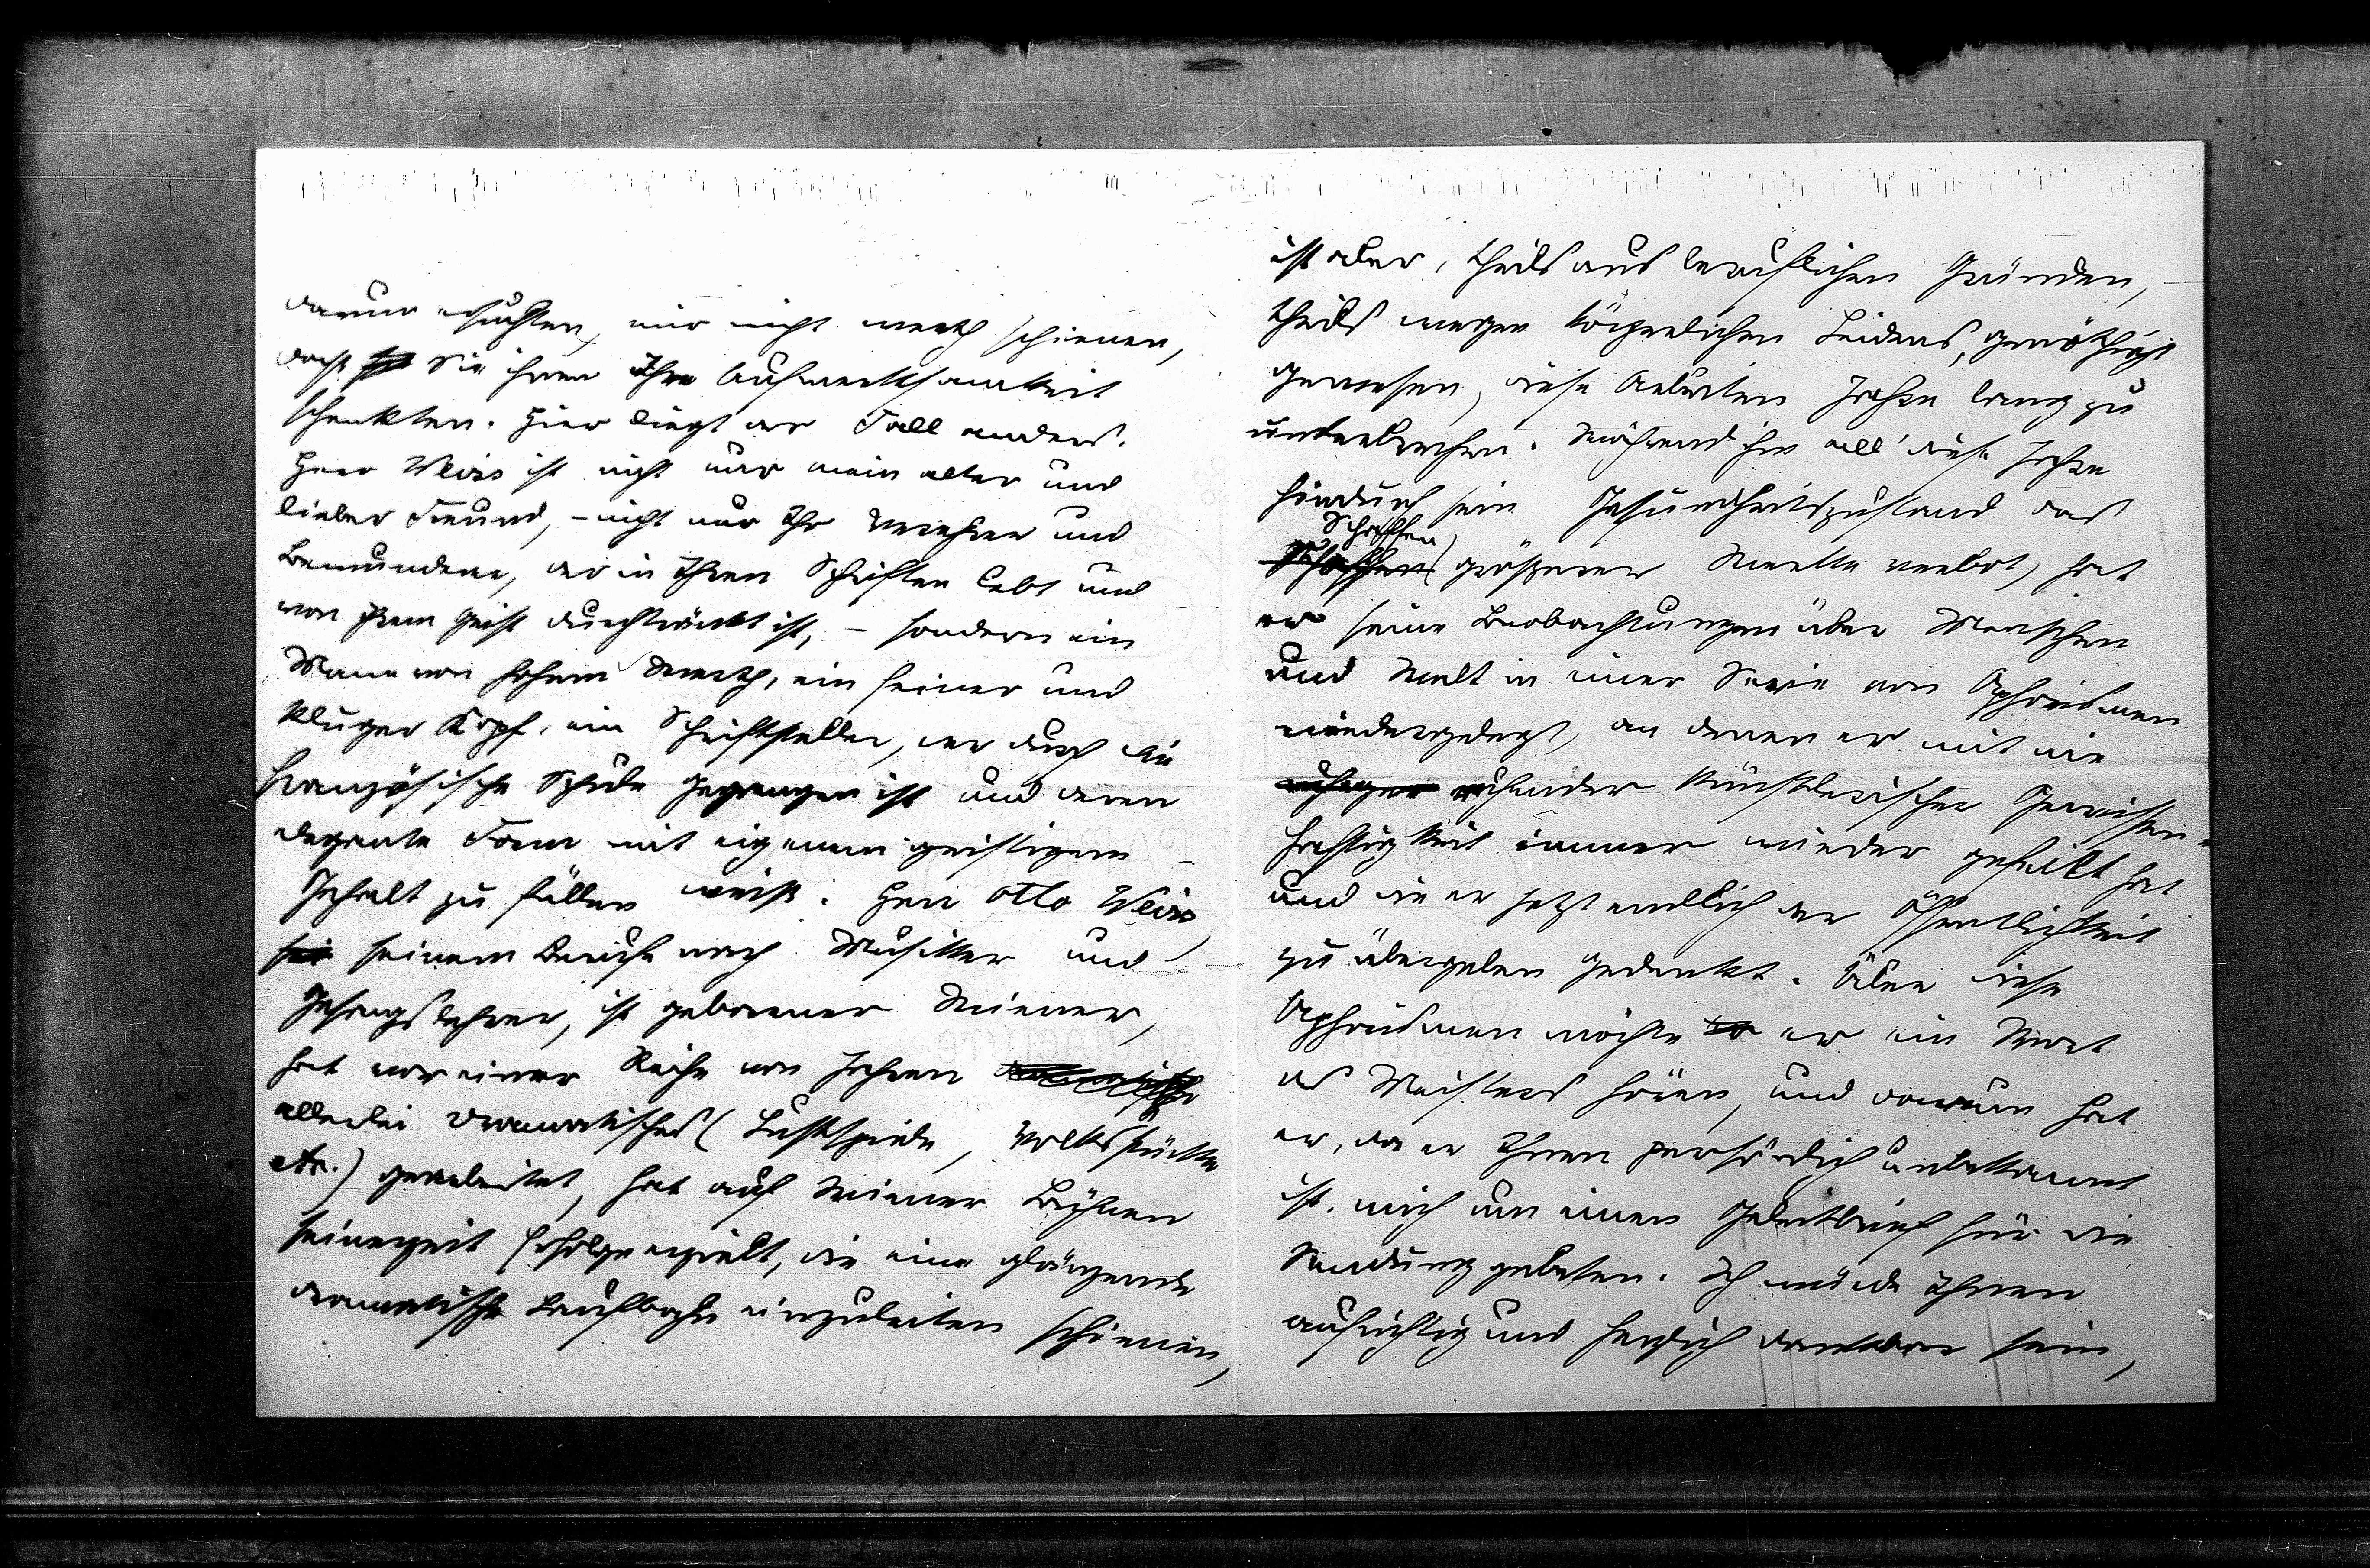 darum ersuchten, mir nicht werth schienen,
dass Sie ihnen Ihre Aufmerksamkeit
schenkten. Hier liegt der Fall anders.
Herr Weiss ist nicht nur mein alter und
lieber Freund, – nicht nur Ihr Verehrer und
Bewunderer, der in Ihren Schriften lebt und
von Ihrem Geist durchtränkt ist, – sondern ein
Mann von hohem Werth, ein feiner und
kluger Kopf, ein Schriftsteller, der durch die
französische Schule gegangen ist und deren
elegante Form mit eigenem geistigem
Gehalt zu füllen weiß. Herr Otto Weiss,
seinem Berufe nach Musiker und
Gesangslehrer, ist geborener Wiener,
hat vor einer Reihe von Jahren
allerlei Dramatisches (Lustspiele, Volksstücke
etc.) gearbeitet, hat auf Wiener Bühnen
seinerzeit Erfolge erzielt, die eine glänzende
dramatische Laufbahn einzuleiten schienen,
ist aber, theils aus beruflichen Gründen,
theils wegen körperlichen Leidens, genöthigt
gewesen, diese Arbeiten Jahre lang zu
unterbrechen. Während ihm all' diese Jahre
hindurch sein Gesundheitszustand das
Schaffen
größerer Werke verbot, hat
er seine Beobachtungen über Menschen
und Welt in einer Serie von Aphorismen
niedergelegt, an denen er mit nie
ruhender künstlerischer Gewissen-
haftigkeit immer wieder gefeilt hat
und die er jetzt endlich der Öffentlichkeit
zu übergeben gedenkt. Über diese
Aphorismen möchte er ein Wort
des Meisters hören, und darum hat
er, da er Ihnen persönlich unbekannt
ist, mich um einen Geleitbrief für die
Sendung gebeten. Ich würde Ihnen
aufrichtig und herzlich dankbar sein,